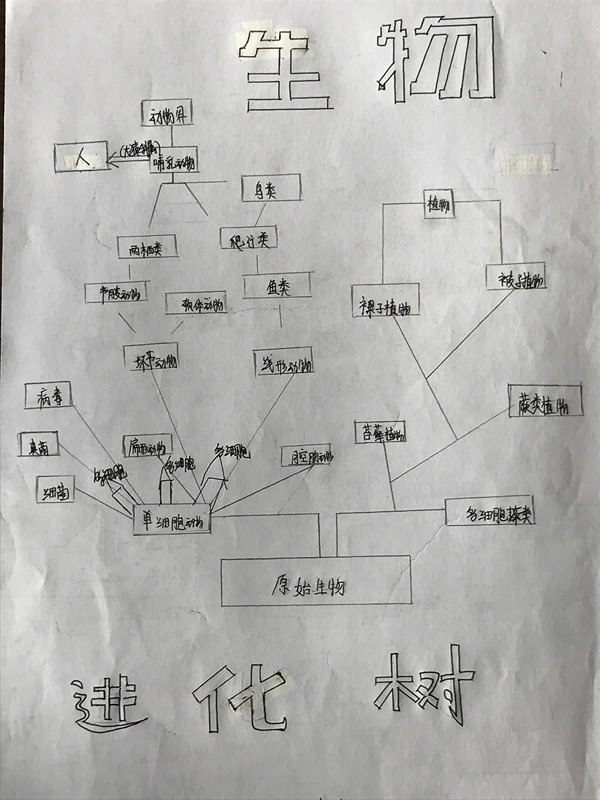 生物
动物界
人
哺乳动物
鸟类
植物
两栖类
爬行类
被子植物
节肢动物
软体动物
鱼类
裸子植物
环节动物
线形动物
病毒
蕨类植物
真菌
扁形动物
多细胞
苔藓植物
多细胞
多细胞
腔肠动物
细菌
单细胞动物
多细胞藻类
原始生物
进化树